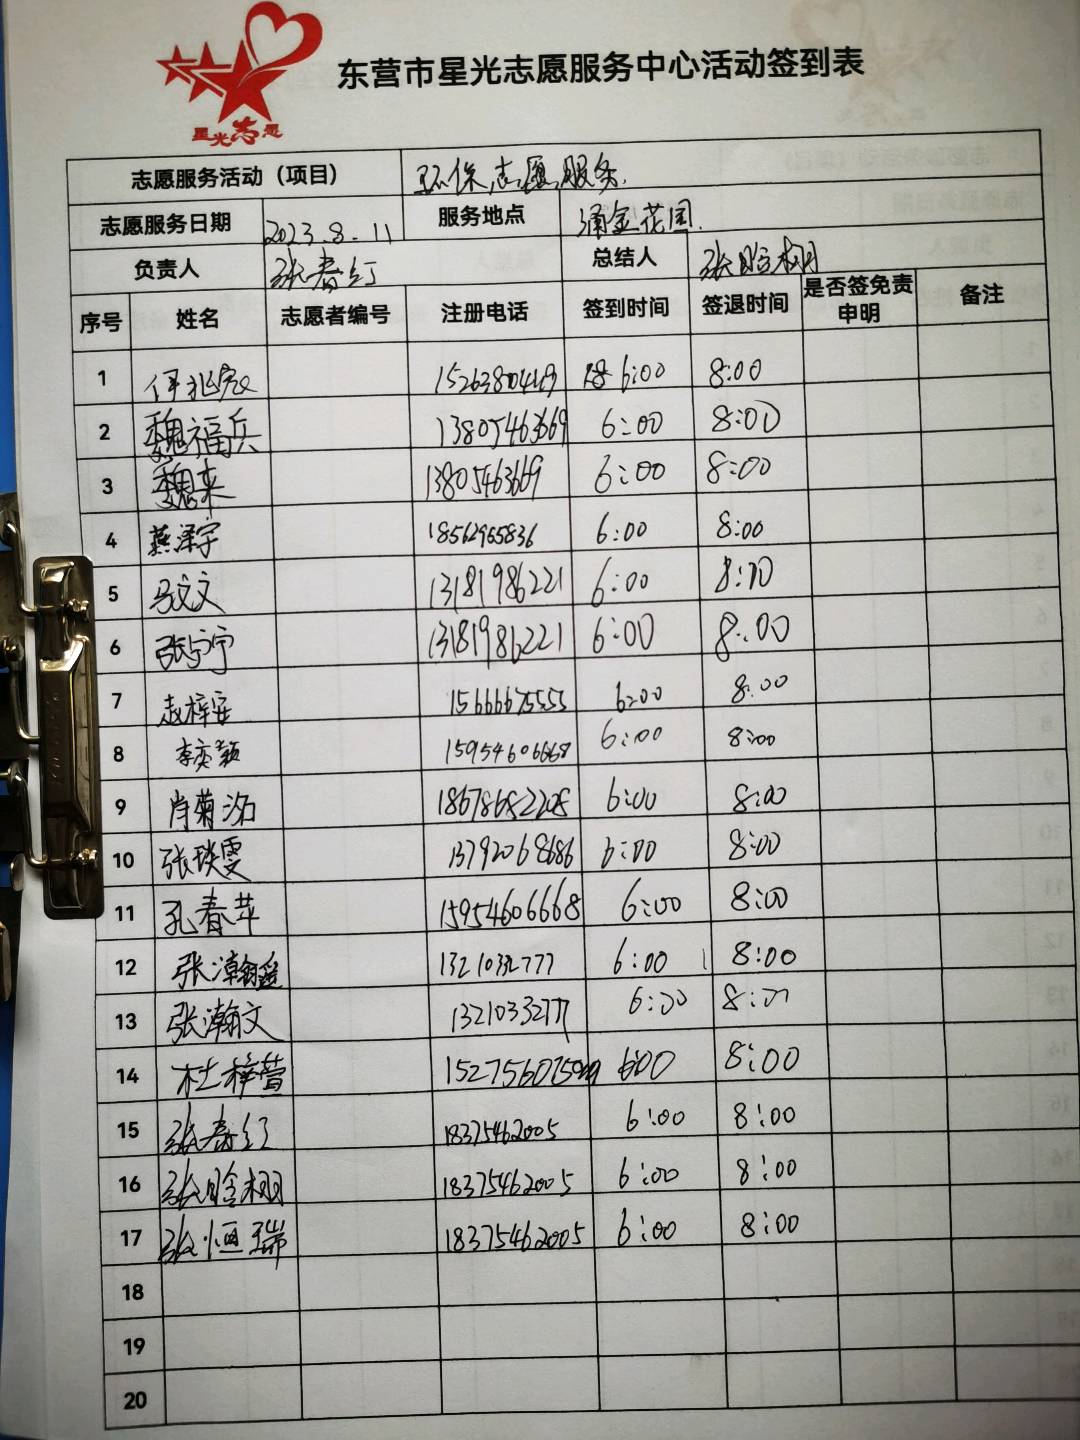 星光志愿
东营市星光志愿服务中心活动签到表
志愿服务活动（项目） 环保志愿服务.
志愿服务日期 2023.8.11 服务地点 涌金花园.
负责人 张春红 总结人 张晗栩
序号 姓名 志愿者编号 注册电话 签到时间 签退时间 是否签免责申明 备注
1 6:00 8:00
2 魏福兵 13805463669 6:00 8:00
3 魏来 13805463669 6:00 8:00
4 燕泽宇 18562955836 6:00 8:00
5 马文文 13181986221 6:00 8:00
6 张宁宁 13181986221 6:00 8:00
7 赵梓安 15666675555 6:00 8:00
8 李奕颖 15954606668 6:00 8:00
9 肖菊洺 18678682208 6:00 8:00
10 张琰雯 13792068686 6:00 8:00
11 孔春苹 15954606668 6:00 8:00
12 张瀚遥 13210332777 6:00 8:00
13 张瀚文 13210332777 6:00 8:00
14 杜梓萱 6:00 8:00
15 张春红 18375462005 6:00 8:00
16 张晗栩 18375462005 6:00 8:00
17 张恒瑞 18375462005 6:00 8:00
18
19
20